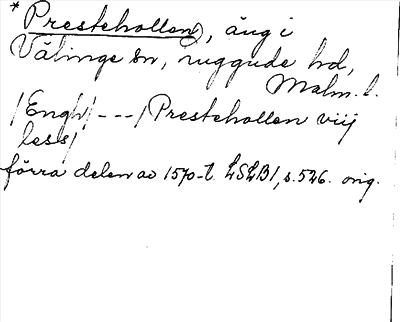 * Prestehollen), äng i
Välinge sn, Luggude hd,
Malm. l.
/Engh/---/Prestehollen viij
less/
förra delen av 1570-t. LSLB1, s. 526. orig.